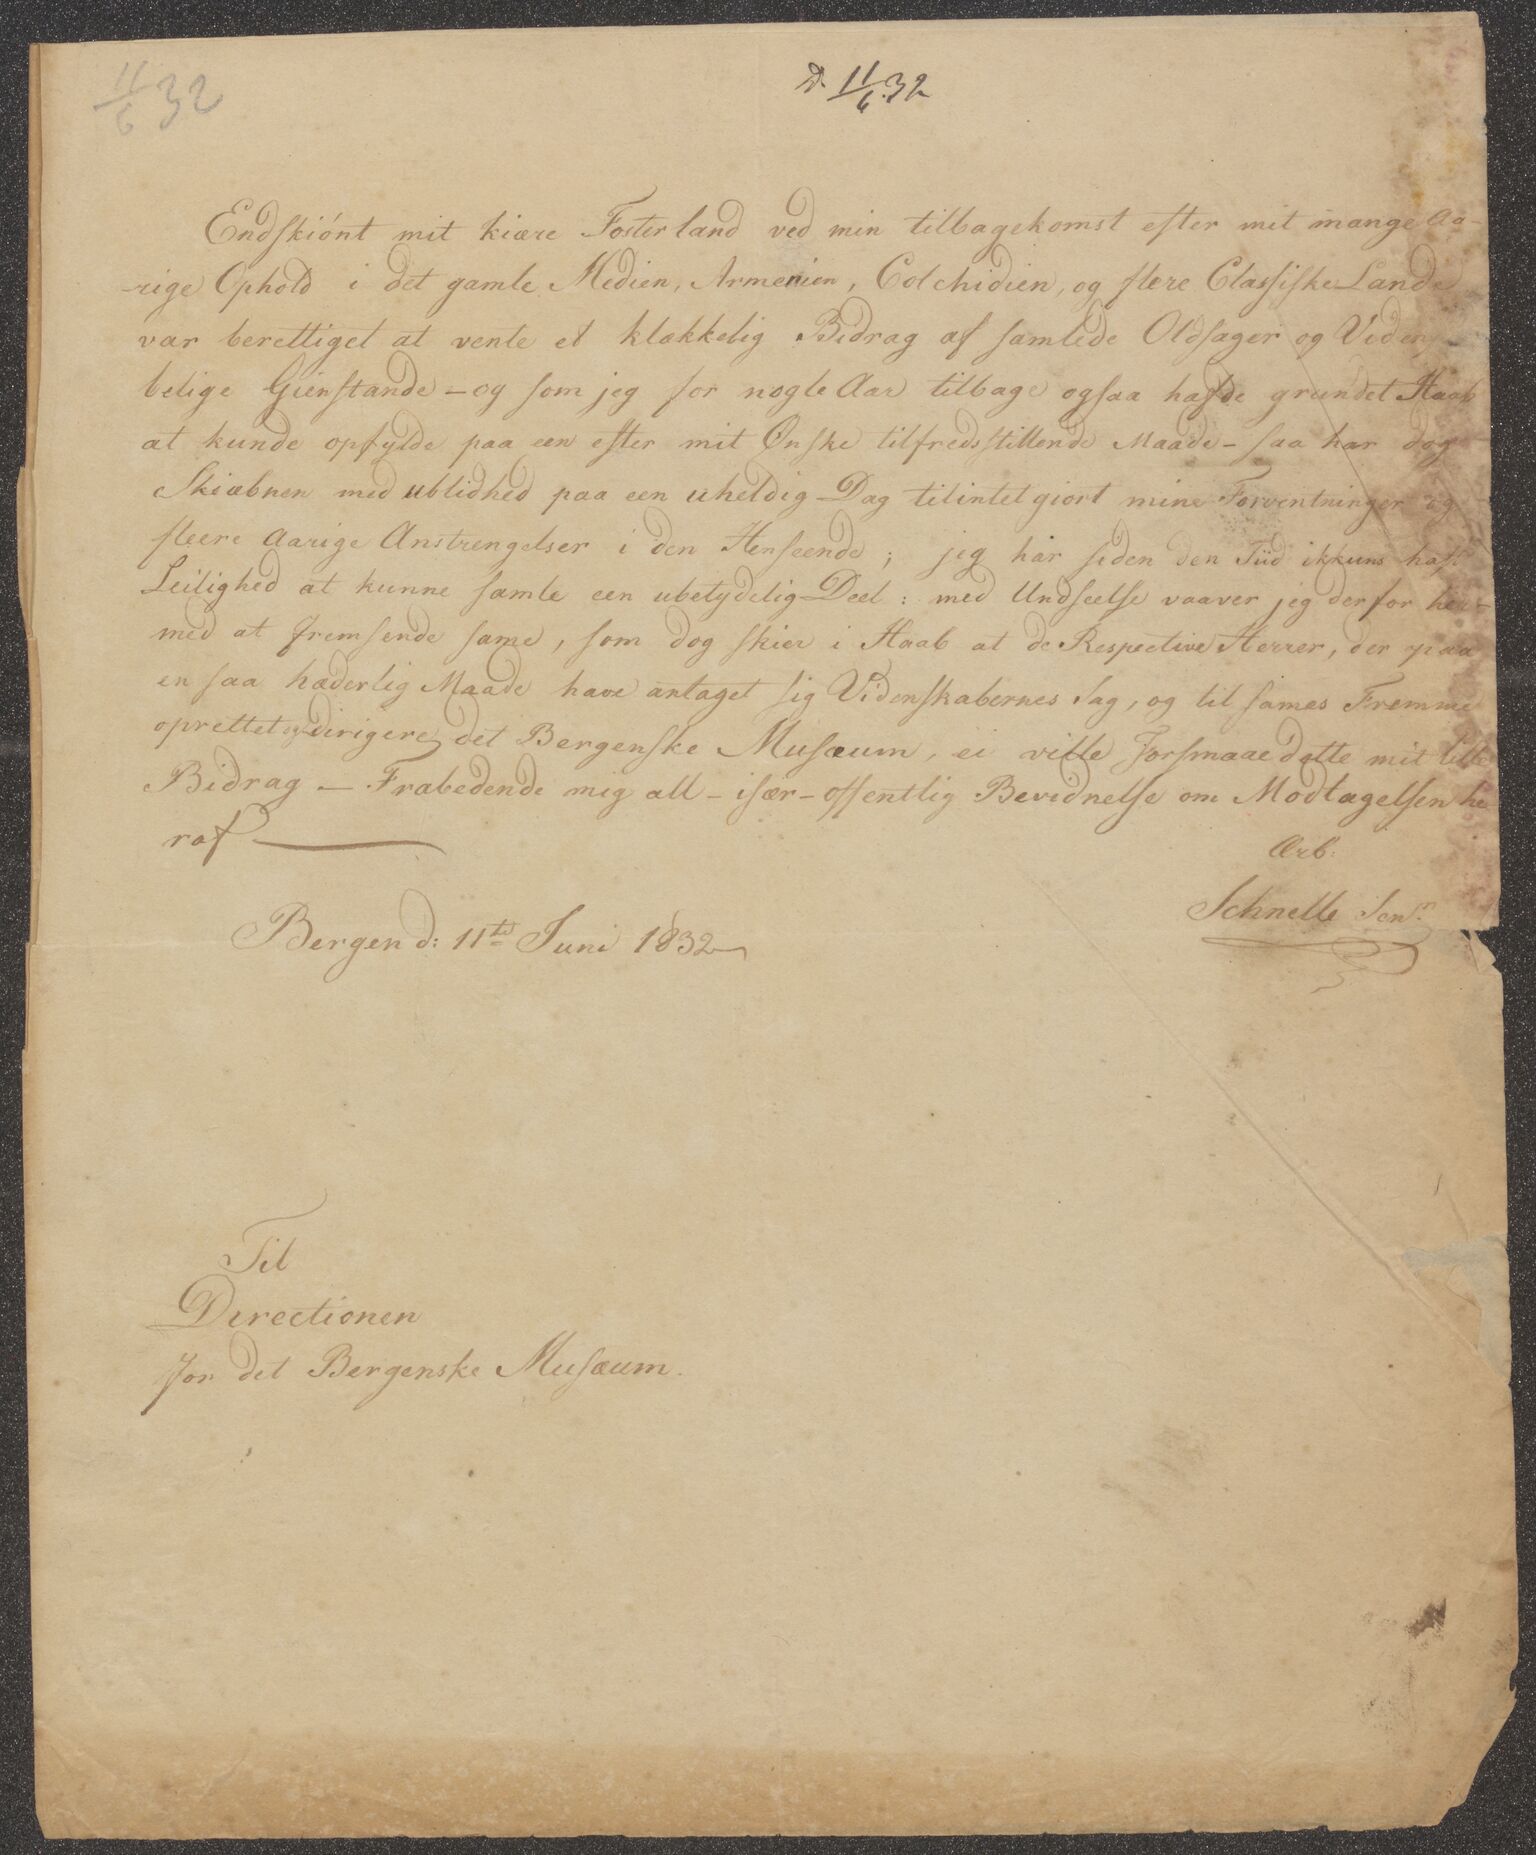 11/6 32
d. 11/6.32
Endskiónt mit kiære Fosterland ved min tilbagekomst efter mit mange Aa-
-rige Ophold i det gamle Medien, Armenien, Colchidien, og flere Classiske Lande
var berettiget at vente et klækkelig Bidrag af samlede Oldsager og
belige Gienstande - og som jeg for nogle Aar tilbage ogsaa hafde grundet Haab
at kunde opfylde paa een efter mit Ønske tilfredsstillende Maade - saa har dog
Skiæbnen med ublidhed paa een uheldig Dag tilintetgiort mine Forventninger og
fleere Aarige Anstrengelser i den Henseende ; jeg har siden den Tiid ikkuns haft
Leilighed at kunne samle een ubetydelig Deel : med Undseelse vaaver jeg derfor her-
med at fremsende same, som dog skier i Haab at de Respective Herrer, der paa
en saa hæderlig Maade have antaget sig Videnskabernes Sag, og til sames Fremme
oprettet og dirigere det Bergenske Musæum, ei ville forsmaae dette mit lille
Bidrag — Frabedende mig all - især - offentlig Bevidnelse om Modtagelsen he
raf —
Ærb:
Schnelle Senr.
Bergen d: 11te Juni 1832
Til
Directionen
for det Bergenske Musæum.